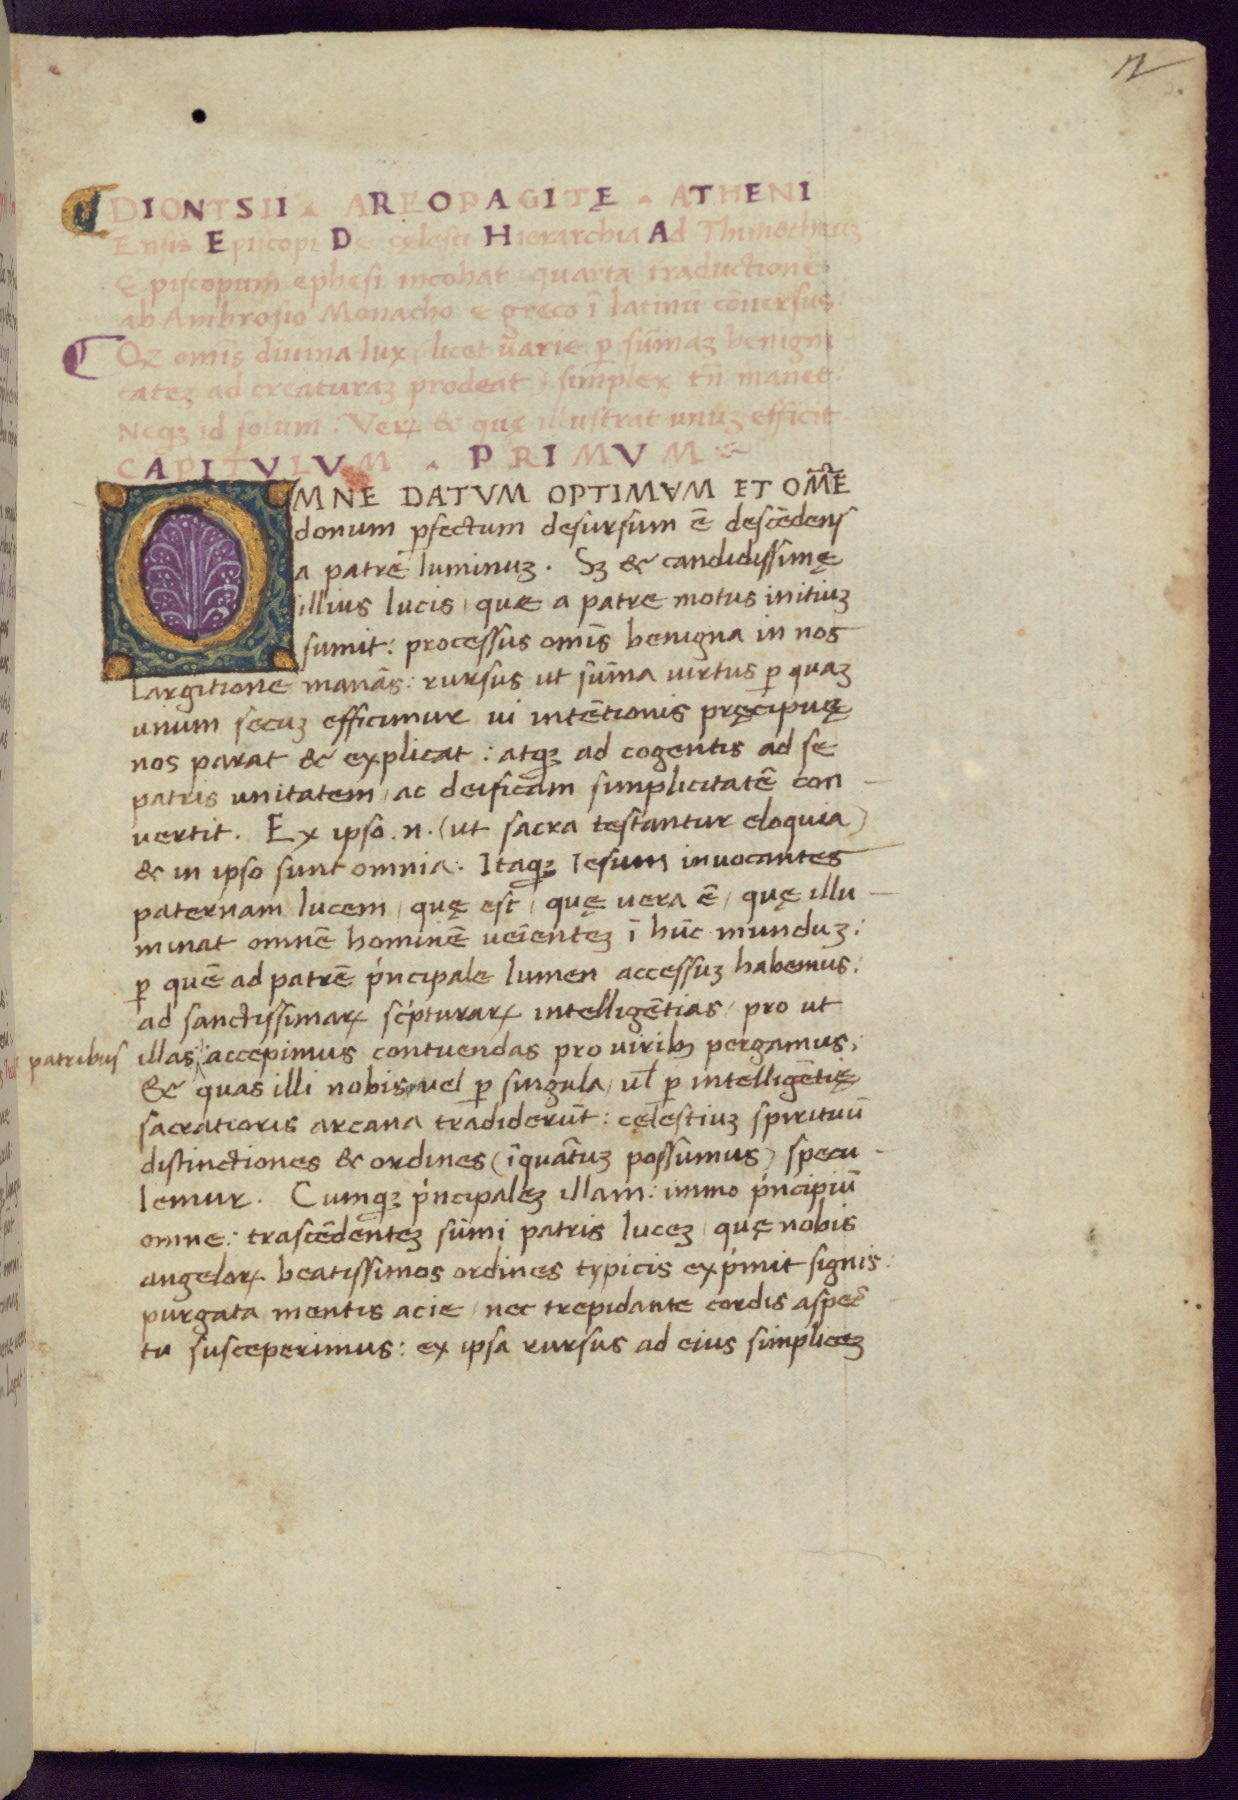 12
DIONYSII AREOPAGITĘ ATHENI
Ensis Episcopi De cęlesti Hierarchia Ad Thimotheuꝫ
Episcopum ephesi incohat quarta traductione
ab Ambrosio Monacho e greco ī latinū cōversus:
Qꝫ omīs divina lux, licet varie ꝑ sūmaꝫ benigni
tateꝫ ad creaturaꝫ prodeat, simplex tn̄ manet:
Neqꝫ id solum: Veꝝ & quę illustrat unuꝫ efficit
CAPITVLVM PRIMVM
OMNE DATVM OPTIMVM ET OM̄E
donum ꝑfectum desursum ē descēdens
a patre luminuꝫ. Sꝫ & candidissimę
illius lucis, quae a patre motus initiuꝫ
sumit: processus omīs benigna in nos
largitione manās: rursus ut sūma virtus ꝑ quaꝫ
unum secuꝫ efficimur vi intētionis pręcipuę
nos parat & explicat: atqꝫ ad cogentis ad se
patris unitatem, ac deificam simplicitatē con
vertit. Ex ipso .n. (ut sacra testantur eloquia)
& in ipso sunt omnia. Itaqꝫ Iesum invocantes
paternam lucem, quę est, quę vera ē, quę illu
minat omnē hominē veīenteꝫ ī hūc munduꝫ:
ꝑ quē ad patrē pͥncipale lumen accessuꝫ habemus:
ad sanctissimaꝝ scͥpturaꝝ intelligētias, pro ut
patribus illas accepimus contuendas pro viribꝫ pergamus:
& quas illi nobis, vel ꝑ singula, ul̄ ꝑ intelligētię
sacratioris arcana tradiderūt: cęlestiuꝫ spirituū
distinctiones & ordines (īquātuꝫ possumus) specu
lemur. Cumqꝫ pͥncipaleꝫ illam: immo pͥncipiū
omne: trascēdenteꝫ sūmi patris luceꝫ, quę nobis
angeloꝝ beatissimos ordines typicis expͥmit signis:
purgata mentis acie, nec trepidante cordis aspec
tu susceperimus: ex ipsa rursus ad eius simpliceꝫ